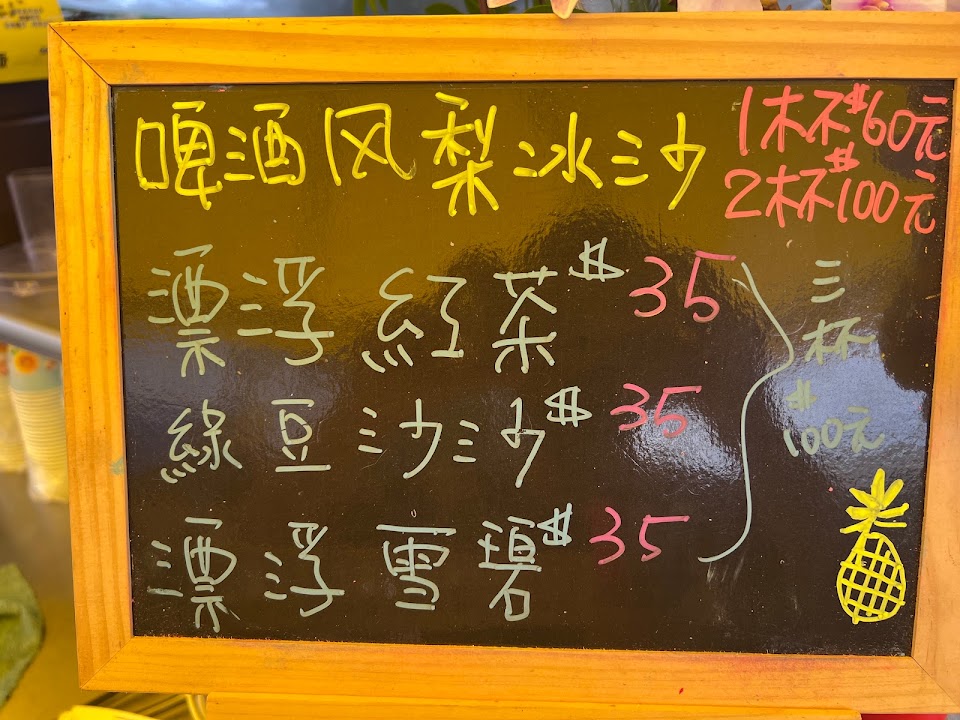 啤酒风梨冰沙
1杯$60元
2杯$100元
漂浮紅茶$35
綠豆沙沙$35
漂浮雪碧$35
三杯
$100元